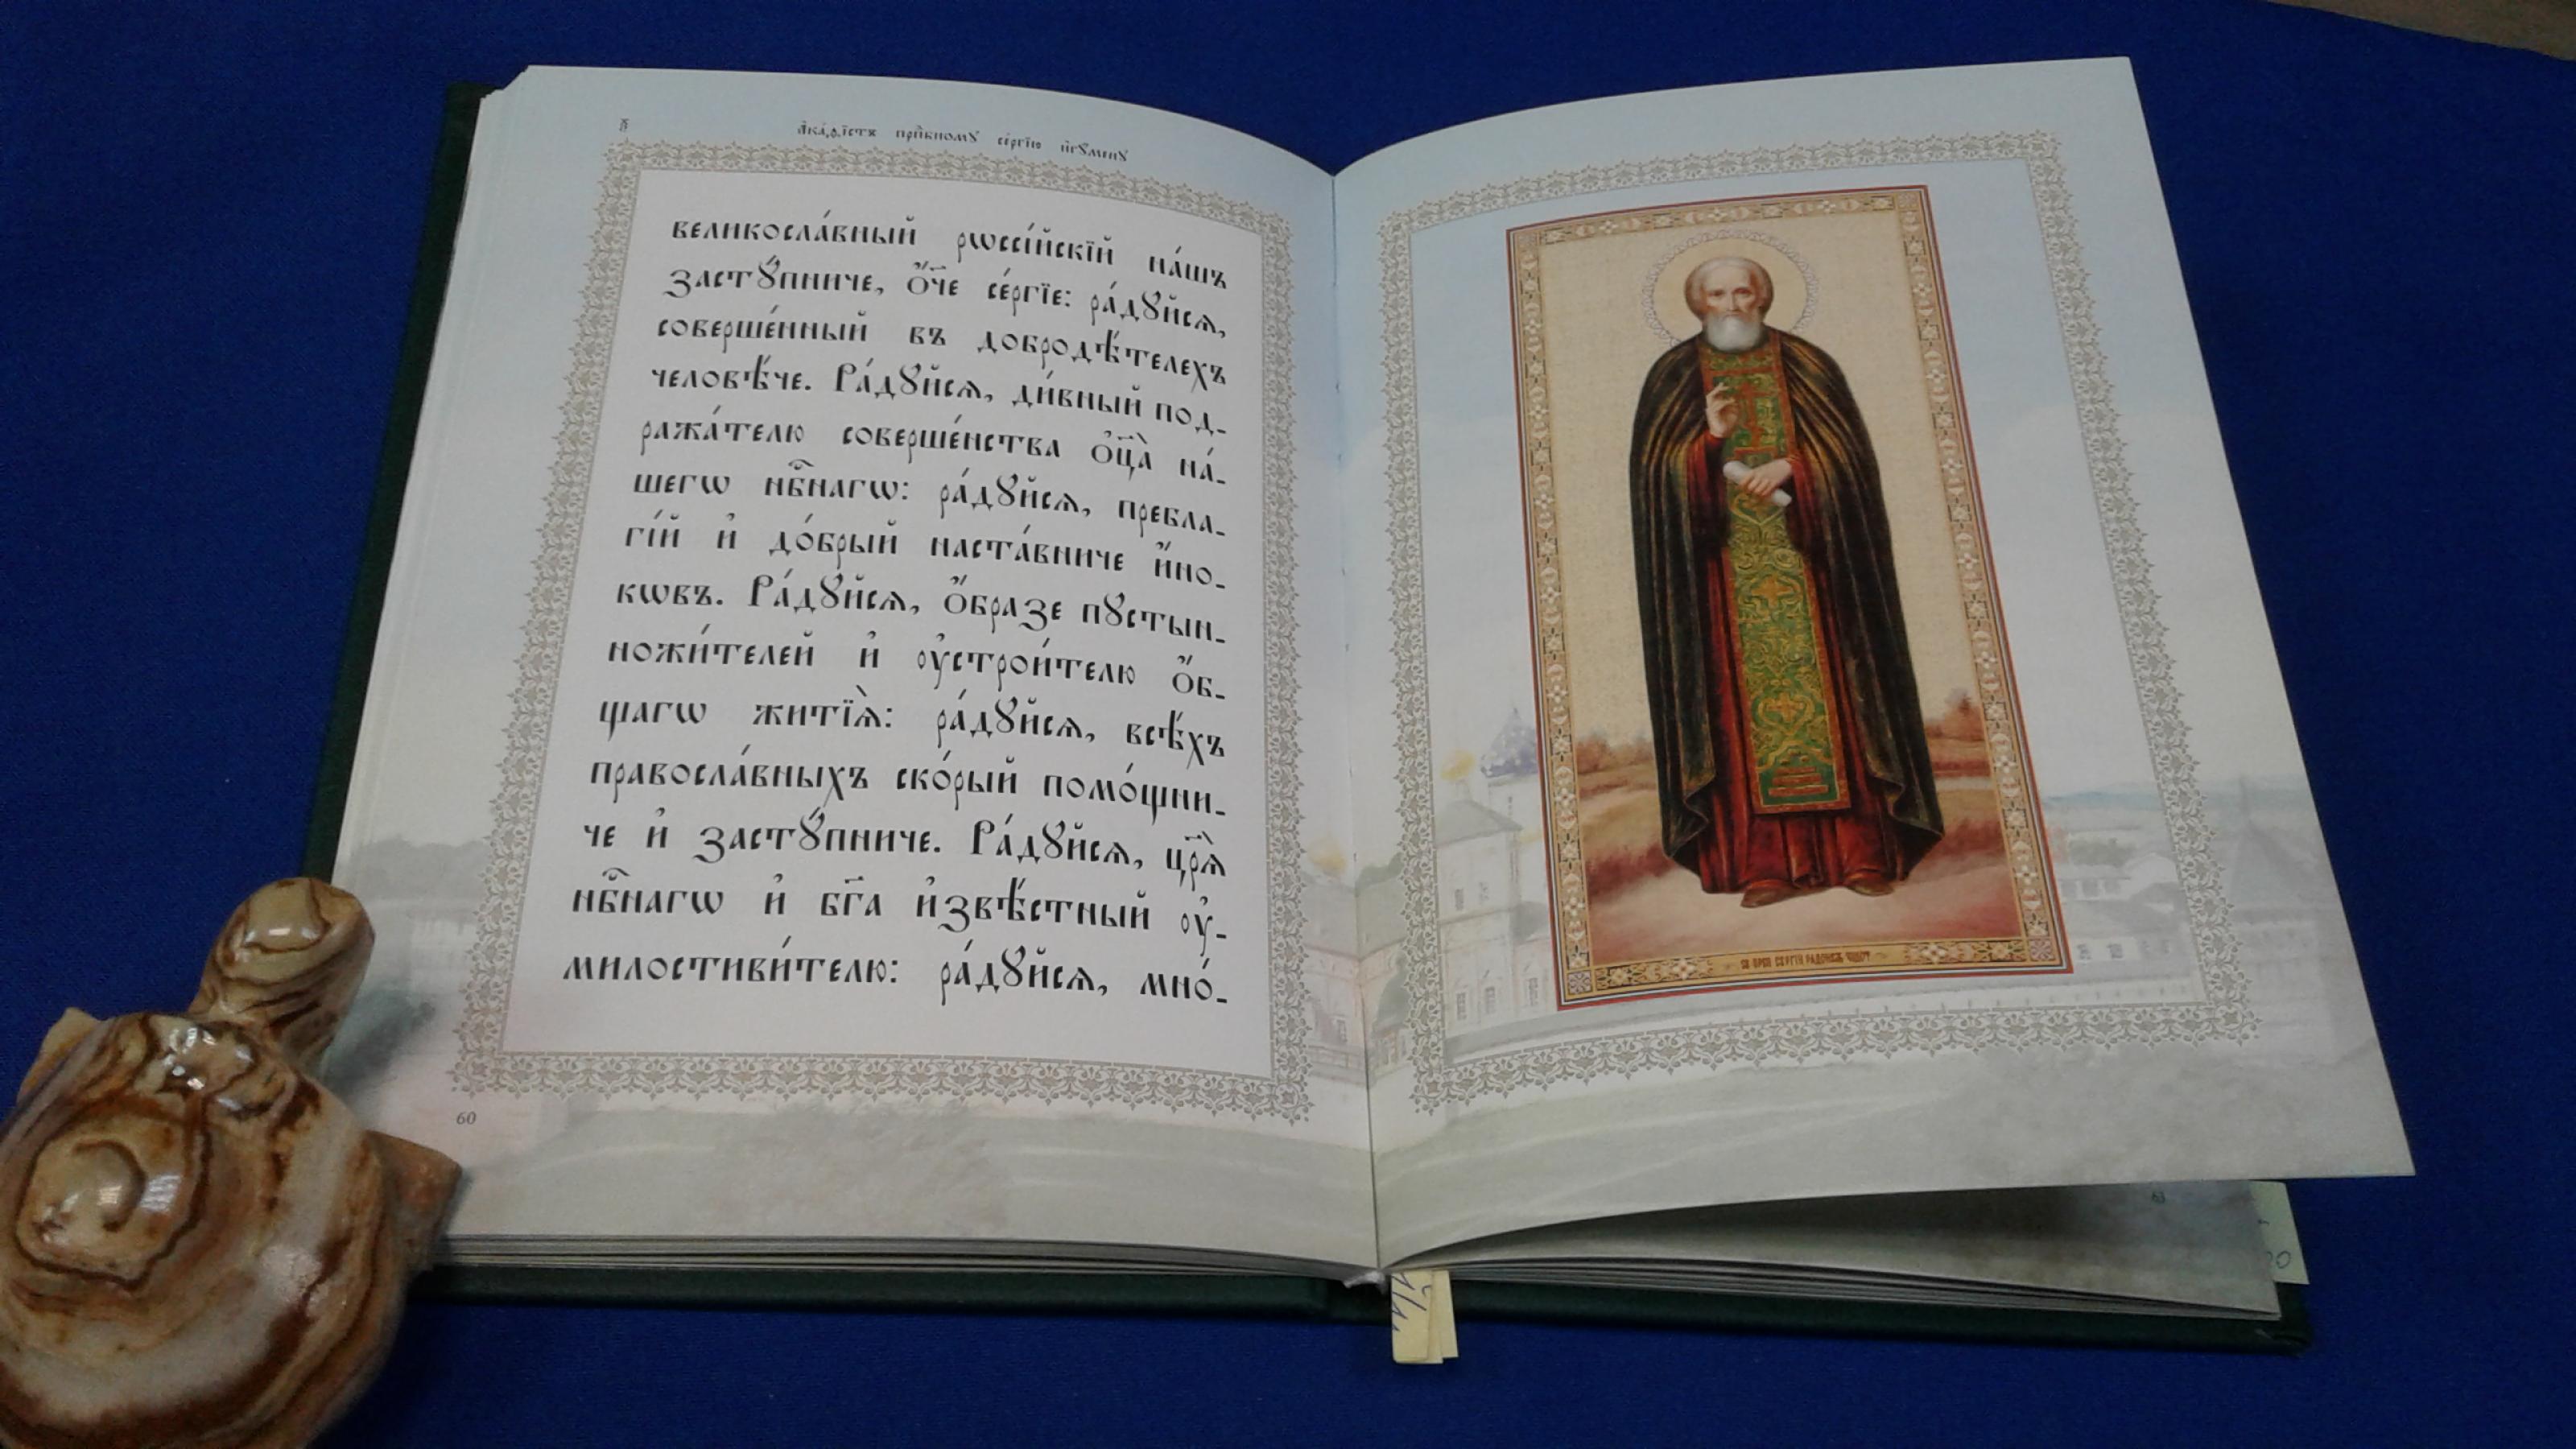 А҆ка́ѳїстъ прпⷣбномꙋ се́ргїю и҆гꙋ́менꙋ
великосла́вный рѡссі́йскїй на́шъ
застꙋ́пниче, ѻ҆́ч҃е се́ргїе: ра́дꙋйсѧ,
соверше́нный въ добродѣ́телехъ
человѣ́че. Ра́дꙋйсѧ, ди́вный под-
ража́телю соверше́нства ѻ҆ц҃а̀ на́-
шегѡ нбⷭ҇нагѡ: ра́дꙋйсѧ, пребла-
гі́й и҆ до́брый наста́вниче и҆́но-
кѡвъ. Ра́дꙋйсѧ, ѻ҆́бразе пꙋстын-
ножи́телей и҆ ᲂу҆строи́телю ѻ҆́б-
щагѡ житїѧ̀: ра́дꙋйсѧ, всѣ́хъ
правосла́вныхъ ско́рый помо́щни-
че и҆ застꙋ́пниче. Ра́дꙋйсѧ, цр҃ѧ̀
нбⷭ҇нагѡ и҆ бг҃а и҆звѣ́стный ᲂу҆-
милостиви́телю: ра́дꙋйсѧ, мно́-
60